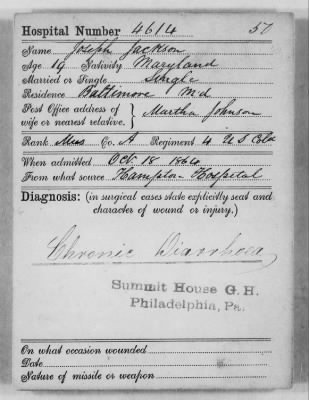 Hospital Number 4614 57
Name Joseph Jackson
Age 19 Nativity Maryland
Married or Single Single
Residence Baltimore Md
Post Office address of
wife or nearest relative. } Martha Johnson
Rank Mus Co. A Regiment 4 U S Cld
When admitted Oct 18 1864
From what source Hampton Hospital
Diagnosis: (in surgical cases state explicitly seat and
character of wound or injury.)
Chronic Diarrhoea
Summit House G. H.
Philadelphia, Pa.
On what occasion wounded
Date
Nature of missile or weapon